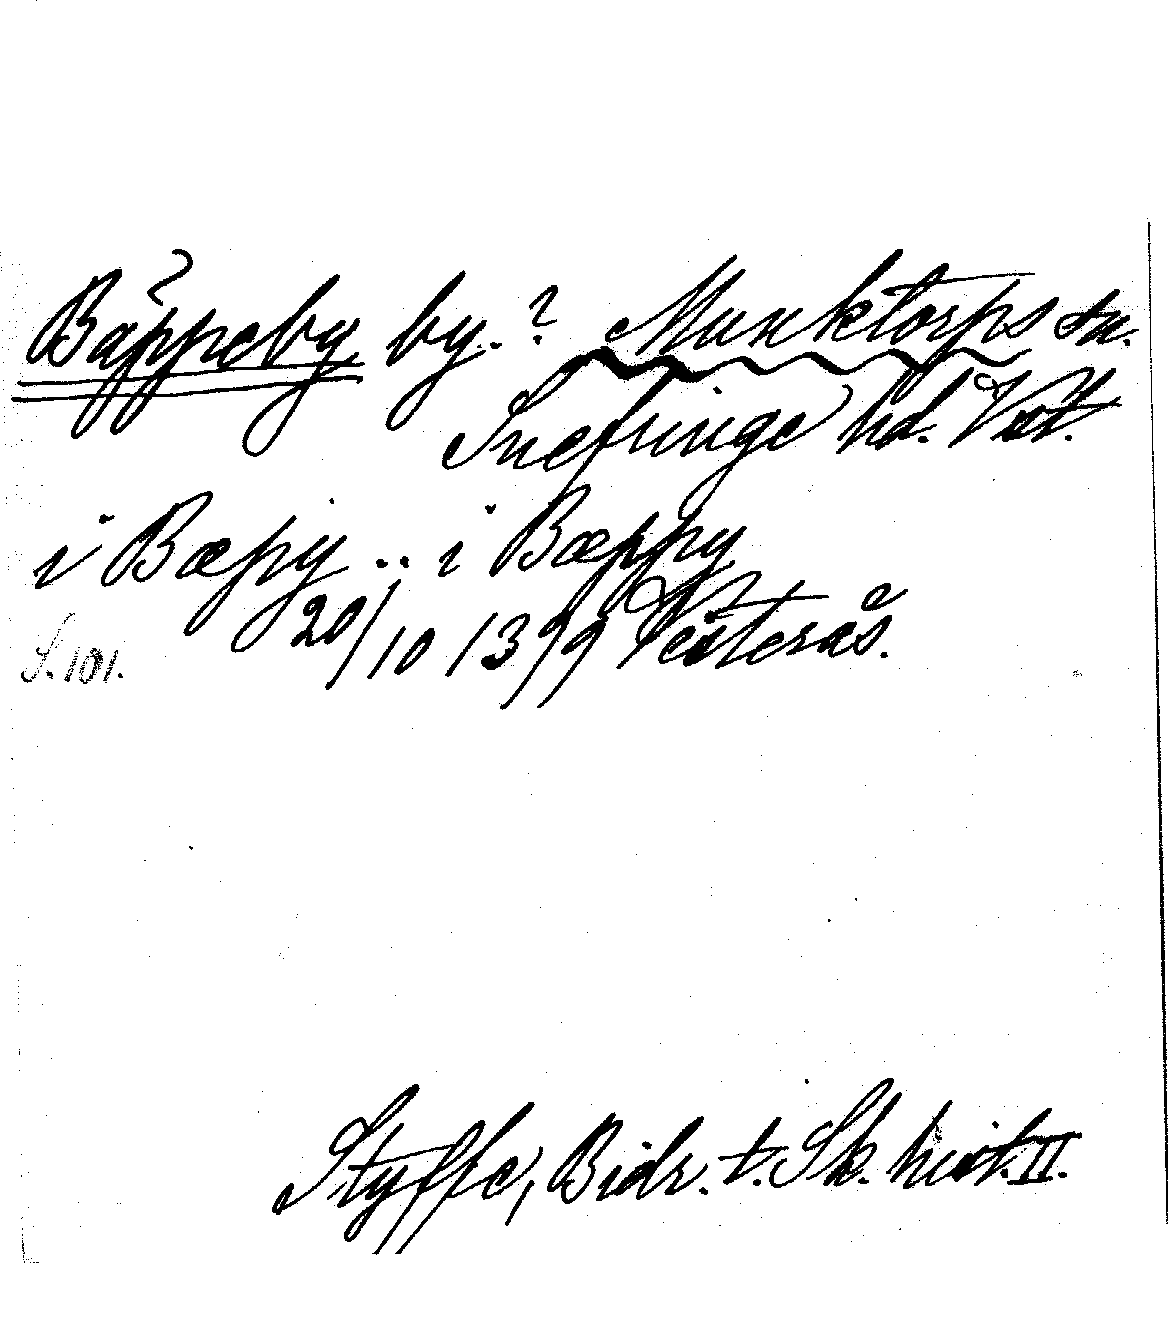 ?
Bäppeby by.? Munktorps sn.
Snefringe hd. Vstm.
i Bæpy .. i Bæppy
20/10 1399 Vesterås.
S. 101.
Styffe, Bidr. t. Sk. hist. II.